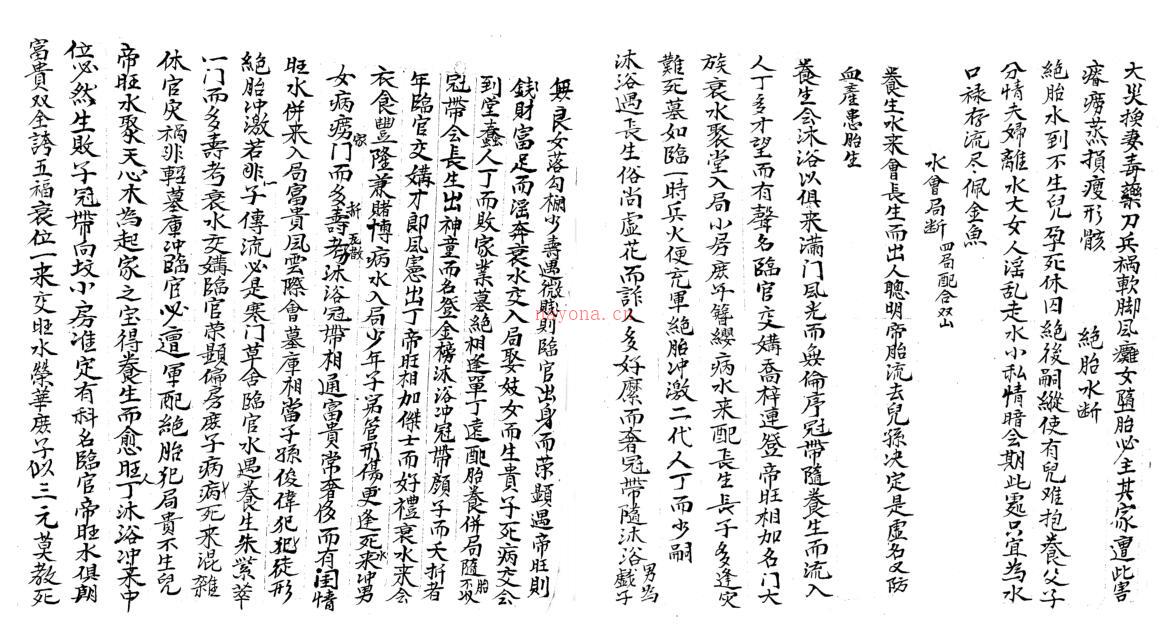 大災換妻毒藥刀兵禍軟脚風癱女墮胎必主其家遭此害
瘵癆蒸損瘦形骸
絕胎水斷
絕胎水到不生兒孕死休囚絕後嗣縱使有兒难抱養父子
分情夫婦離水大女人淫乱走水小私情暗会期此處只宜為水
口禄存流尽佩金魚
水會局断 四局配合双山
養生水来會長生而出人聰明帝胎流去兒孫决定是虛名又防
血產患胎生
養生会沐浴以俱来满门風光而無倫序冠帶隨養生而流入
人丁多才望而有聲名臨官交媾喬梓連登帝旺相加名门大
族衰水聚堂入局小房庶年簪纓病水来配長生長子多逢灾
難死墓如臨一時兵火便充軍絕胎冲激二代人丁而少嗣
沐浴遇長生俗尚虛花而詐人多好縻而奢冠帶隨沐浴男為戲子
無良女落勾栅少壽遇微賤則臨官出身而荣顕遇帝旺則
錢財富足而淫奔衰水交入局娶妓女而生貴子死病交会
到堂蠢人丁而敗家業墓絕相逢單丁遠配胎養併局隨胎不収
冠帶会長生出神童而名登金榜沐浴冲冠帶顏子而夭折者
年臨官交媾才郎風憲出丁帝旺相加傑士而好禮衰水来会
衣食豐隆兼賭博病水入局少年子弟管形傷更逢死来冲男
女病癆门而多壽考沐浴冠帶相通富貴常奢侈而有闺情
旺水併来入局富貴風雲際會墓庫相當子孫俊偉犯犯徒形
絕胎冲激若非子傳流必是寒门草舍臨官水遇養生朱紫萃
一门而多壽考衰水交媾臨官荣顕偏房庶子病病死来混雜
休官灾禍非輕墓庫冲臨官必遭軍配絕胎犯局貴不生兒
帝旺水聚天心木為起家之宝得養生而愈旺人丁沐浴冲来中
位必然生敗子冠帶向坟小房准定有科名臨官帝旺水俱朝
富貴双全誇五福衰位一来交旺水榮華庶子似三元莫教死
nayona.cn